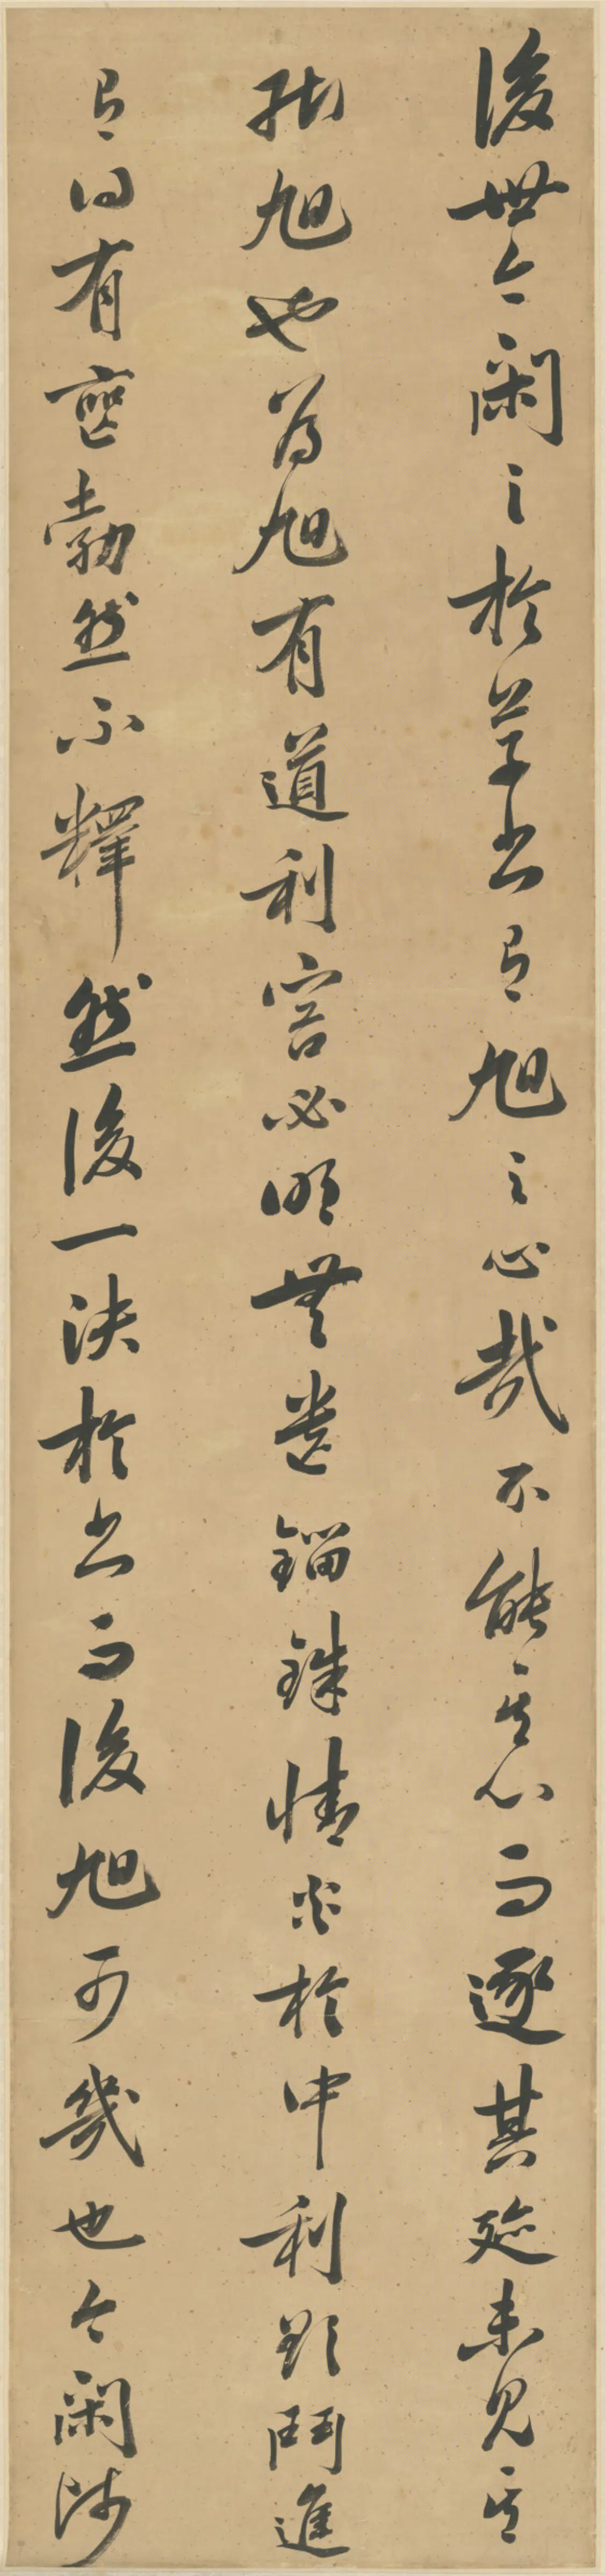 後世今閑之於草書有旭之心哉不能其心而逐其跡未見其
能旭也為旭有道利害必明無遺錙銖情炎於中利欲鬥進
有得有喪勃然不釋然後一決於書而後旭可幾也今閑師